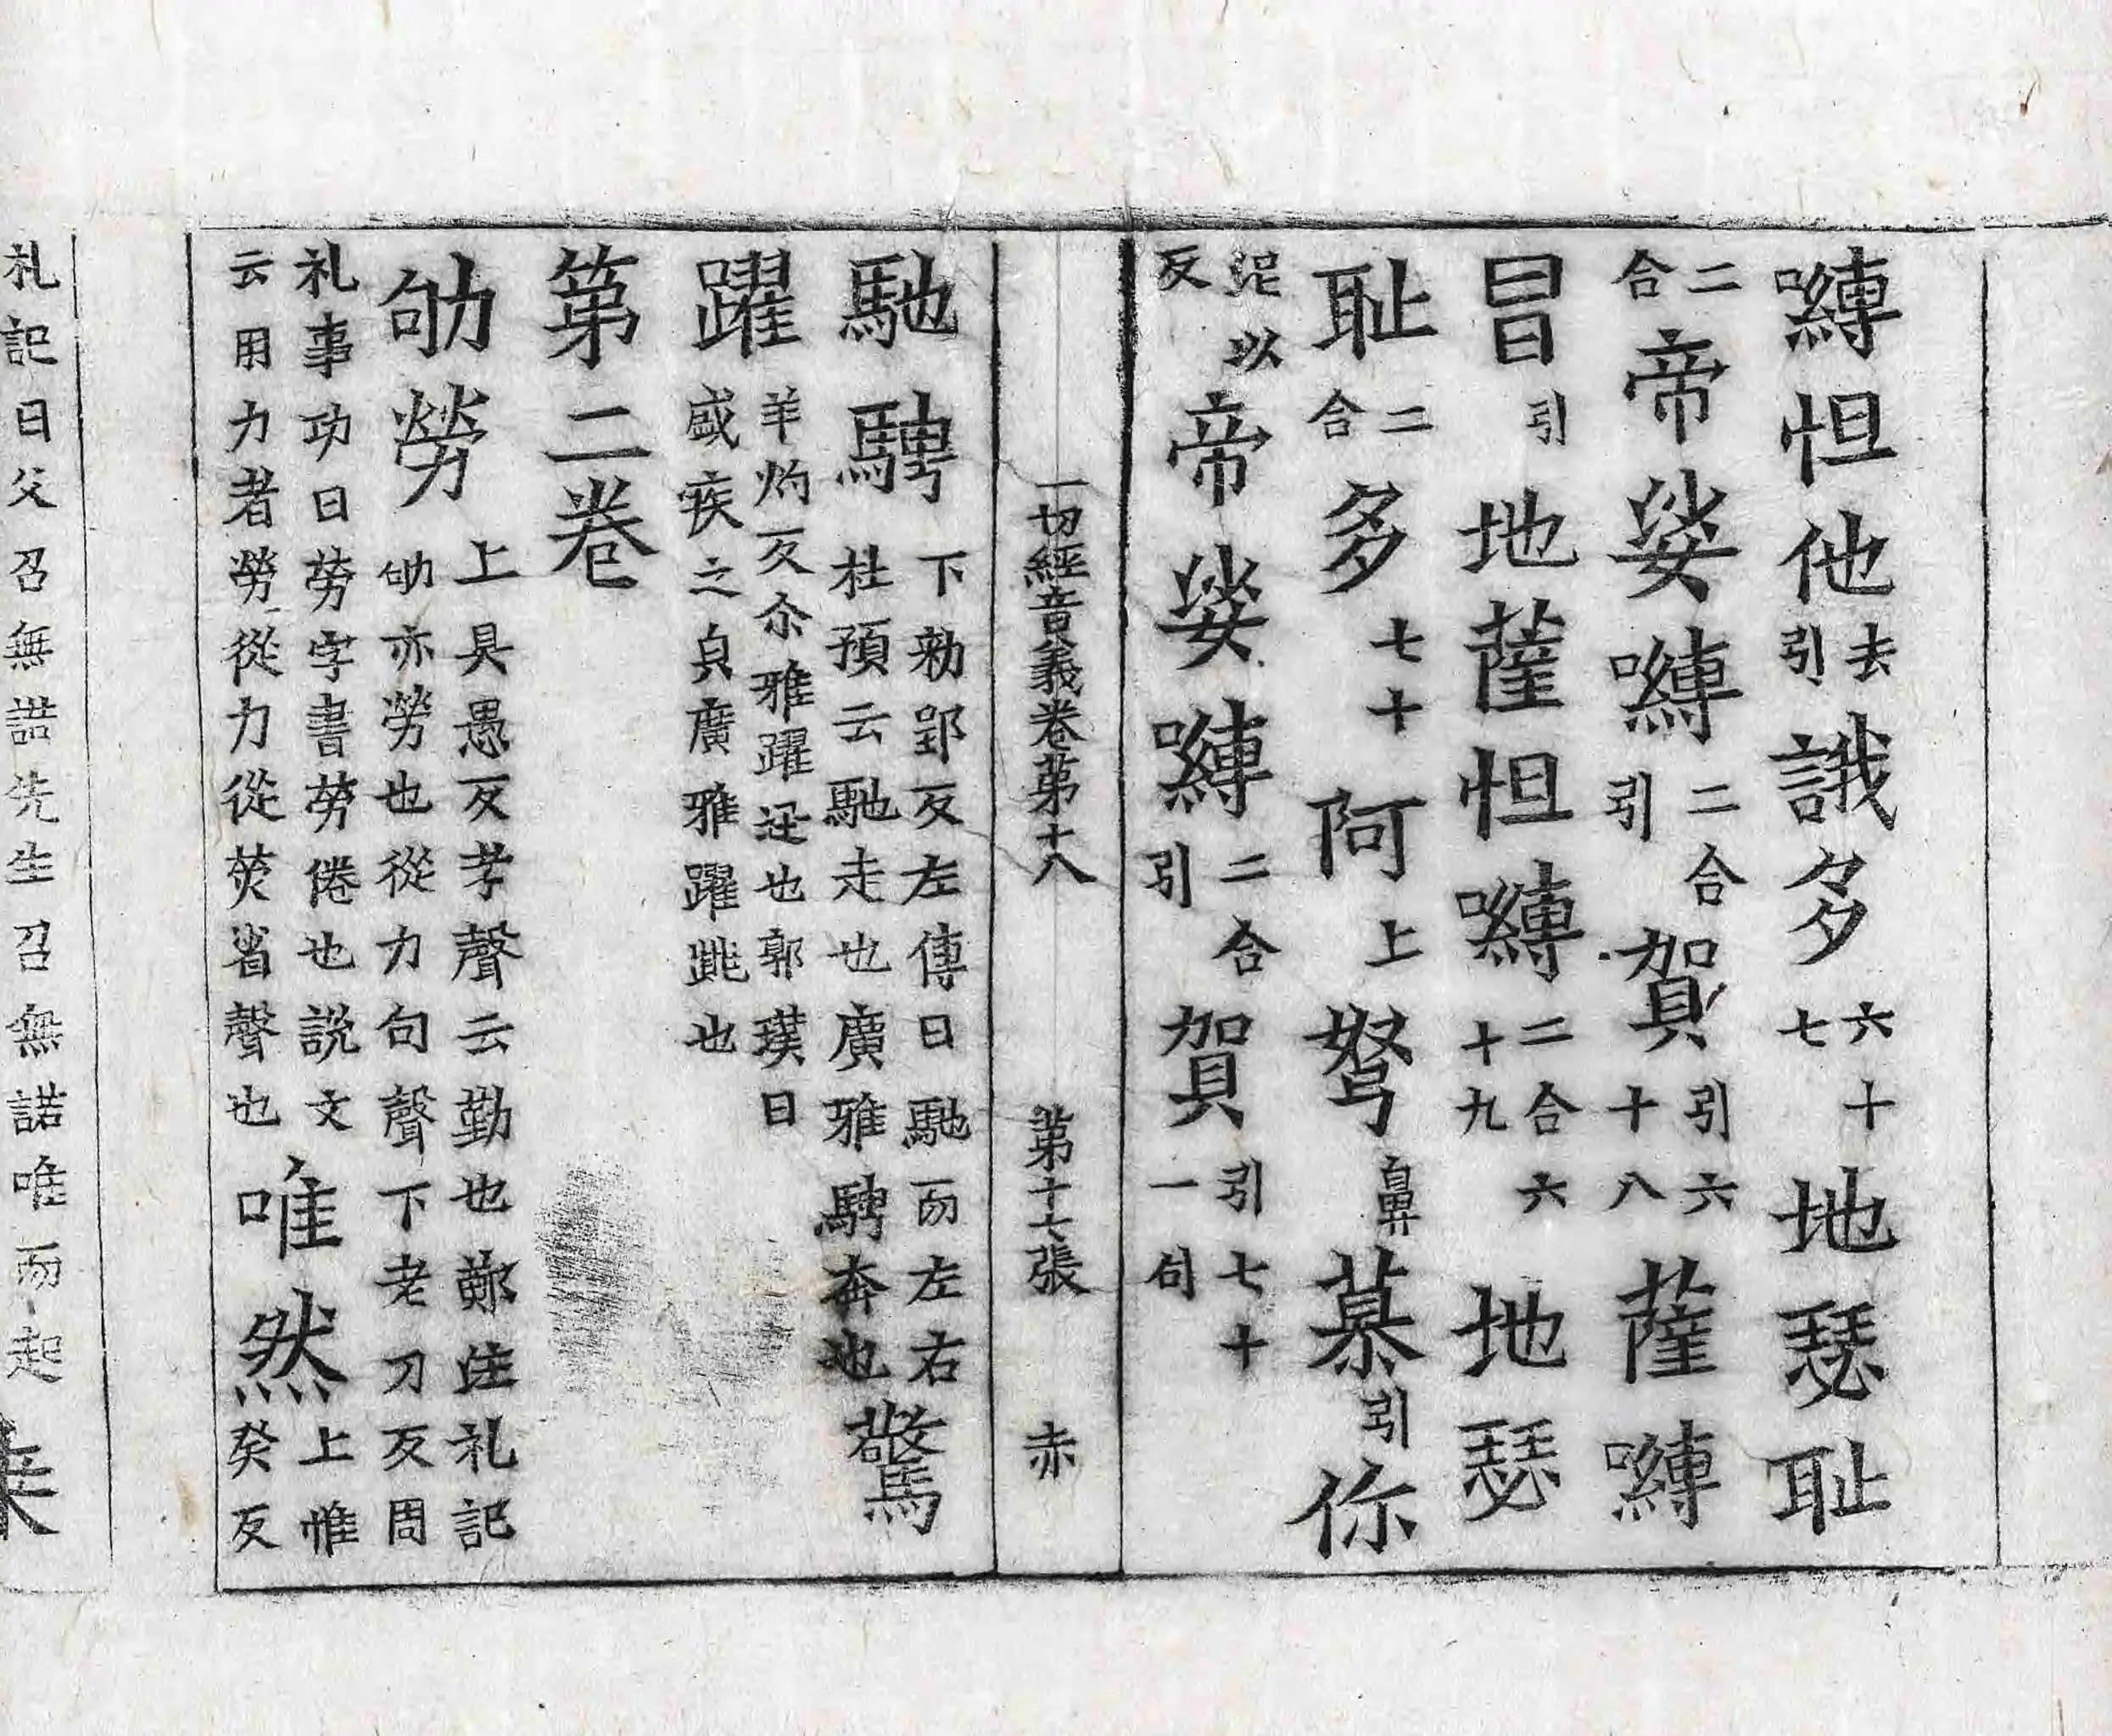 嚩怛他去引誐多六十七地瑟耻
二合帝娑嚩二合引賀引六十八薩嚩
冒引地薩怛嚩二合六十九地瑟
耻二合多七十阿上弩鼻慕引你
泥以反帝娑嚩二合引賀引七十一句
一切經音義卷第十八 第十七張 赤
馳騁下勑郢反左傳曰馳而左右杜預云馳走也廣雅騁奔也驚
躍羊灼反尒雅躍迅也郭璞曰盛疾之皃廣雅躍跳也
第二卷
劬勞上具愚反孝聲云勤也鄭注礼記劬亦勞也從力句聲下老刀反周
礼事功曰勞字書勞倦也説文云用力者勞從力從熒省聲也唯然上惟癸反
礼記曰父召無諾先生召無諾唯而起